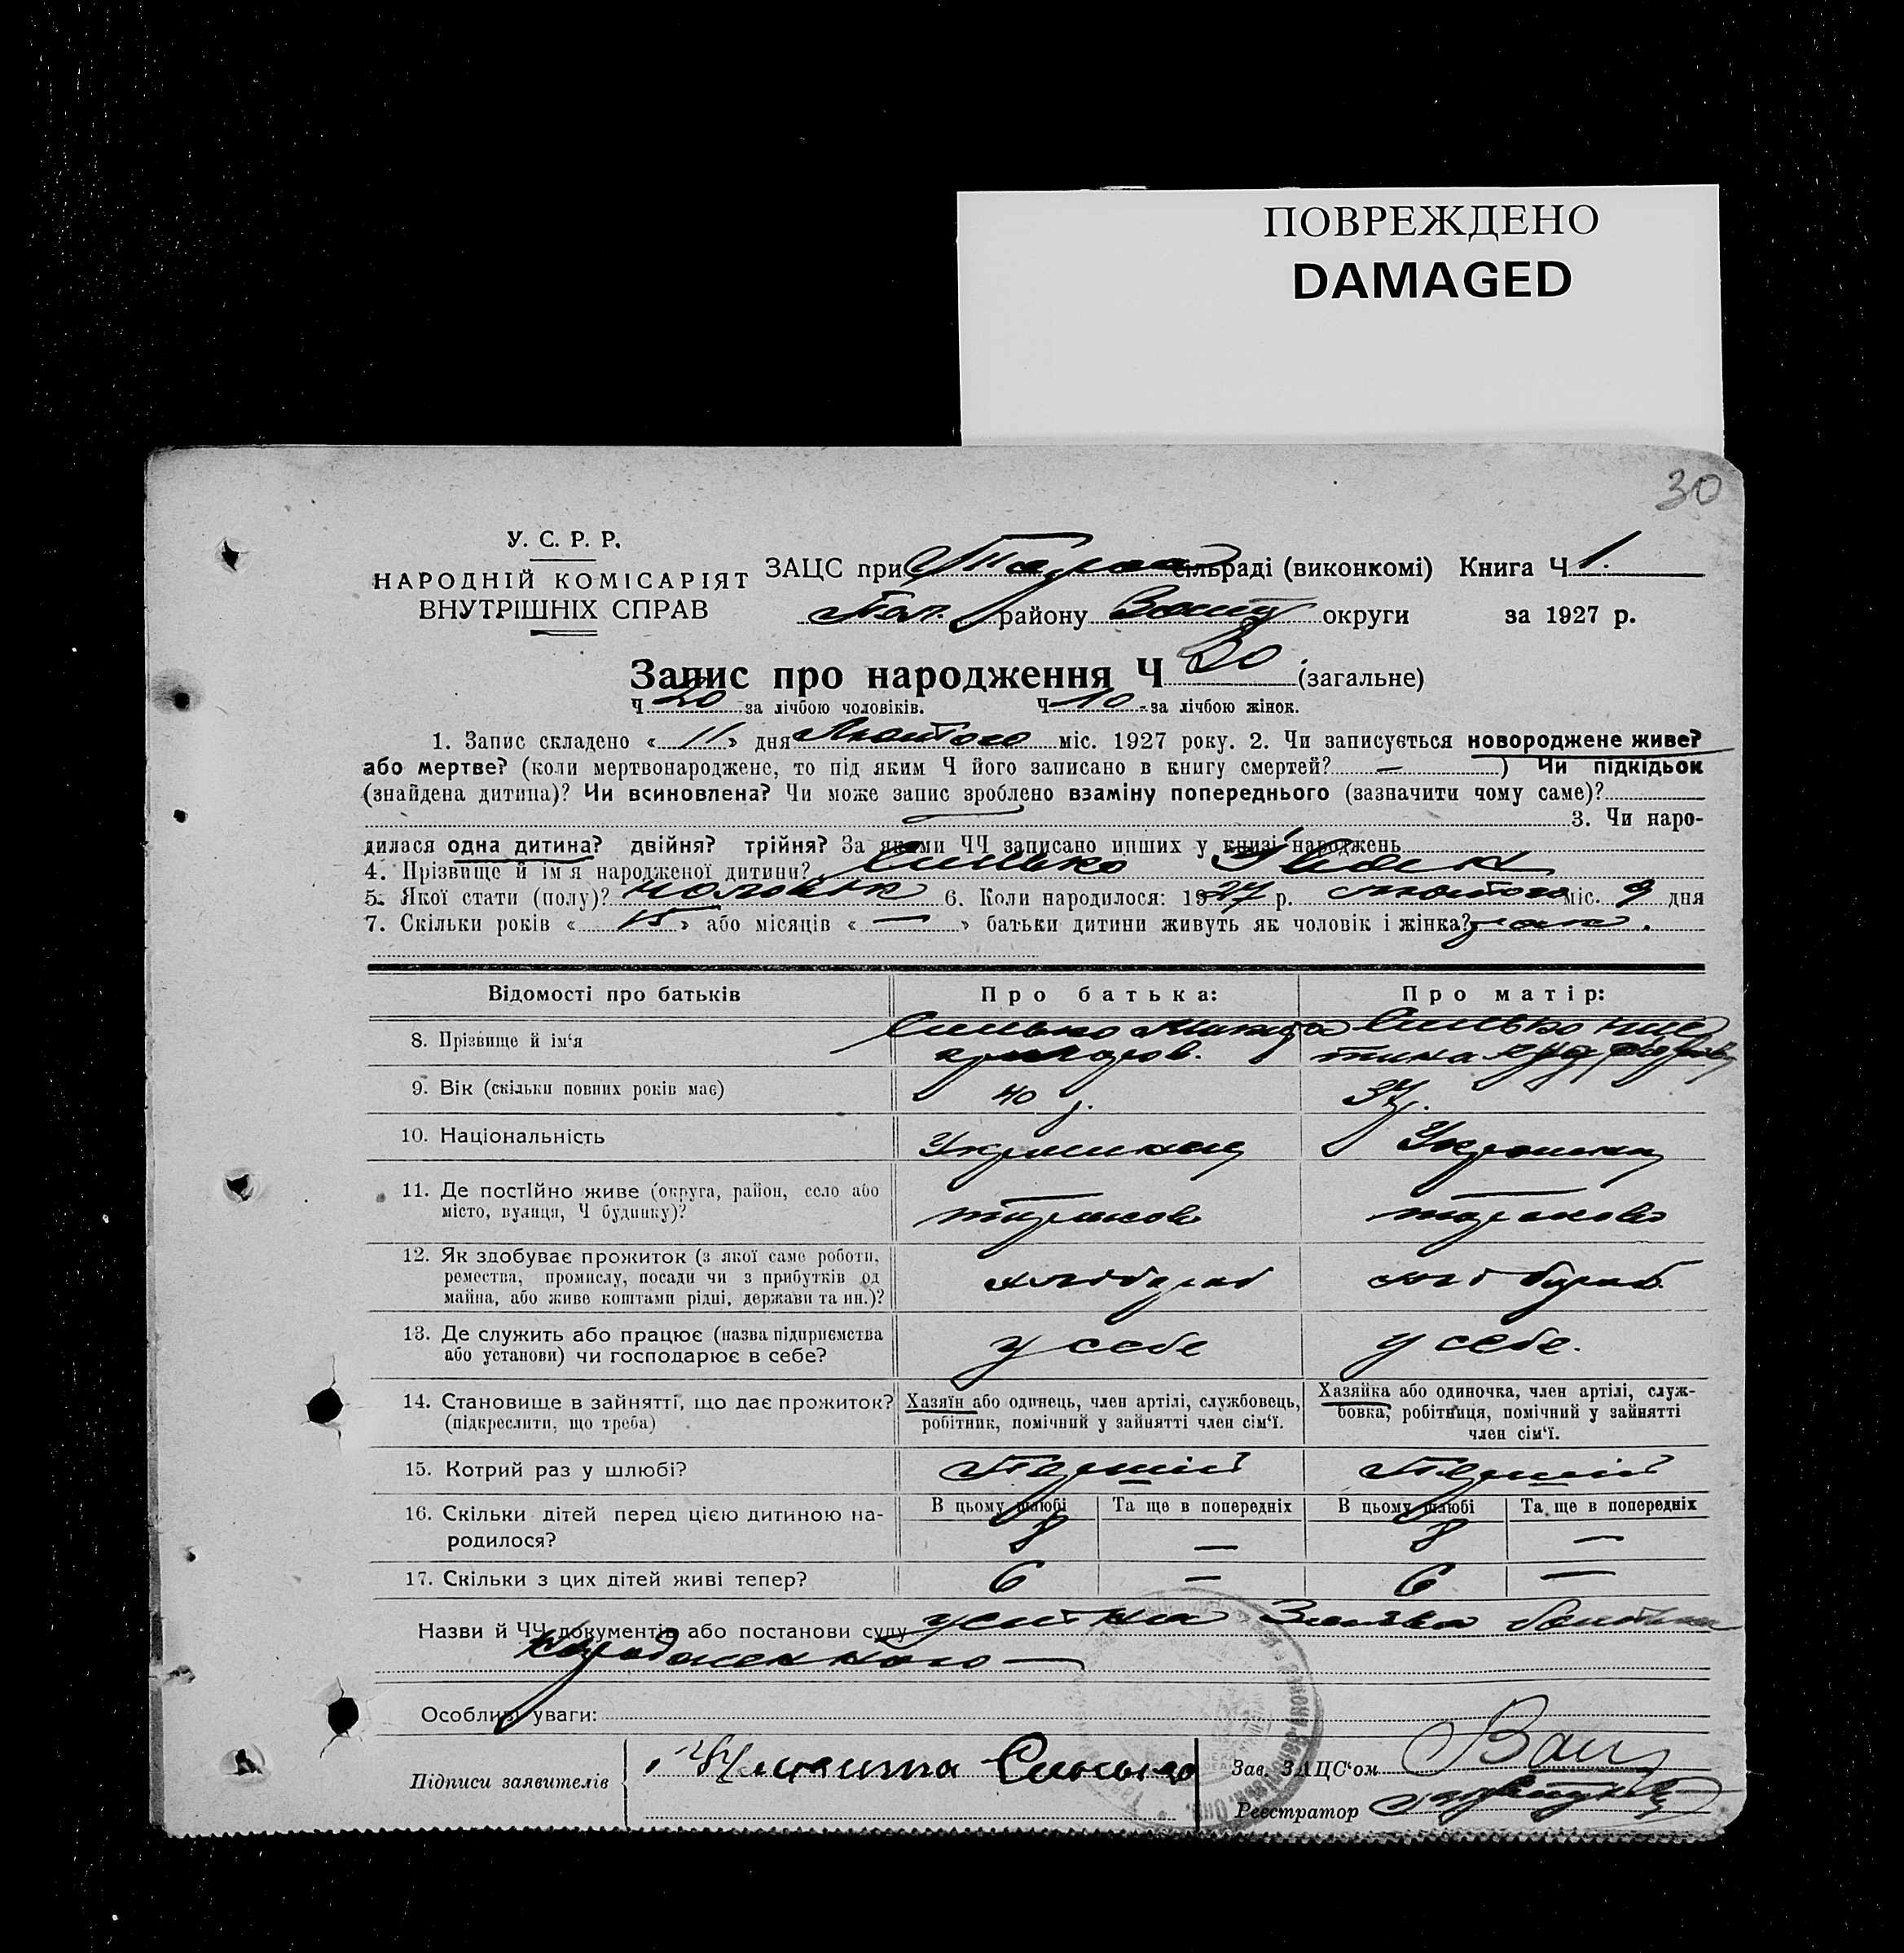 ПОВРЕЖДЕНО
DAMAGED
30
У. С. Р. Р.
НАРОДНІЙ КОМІСАРІЯТ
ВНУТРІШНІХ СПРАВ
ЗАЦС при сільраді (виконкомі) Книга Ч 1.
району округи за 1927 р.
Запис про народження Ч 30 (загальне)
Ч 20 за лічбою чоловіків. Ч 10 за лічбою жінок.
1. Запис складено « 11 » дня Лютого міс. 1927 року. 2. Чи записується новороджене живе?
або мертве? (коли мертвонароджене, то під яким Ч його записано в книгу смертей? — ) Чи підкідьок
(знайдена дитина)? Чи всиновлена? Чи може запис зроблено взаміну попереднього (зазначити чому саме)?
3. Чи наро-
дилася одна дитина? двійня? трійня? За якими ЧЧ записано инших у книзі народжень
4. Прізвище й ім'я народженої дитини? Синько
5. Якої стати (полу)? чоловік 6. Коли народилося: 1927 р. лютого міс. 9 дня
7. Скільки років « 15 » або місяців « — » батьки дитини живуть як чоловік і жінка? так.
Відомості про батьків Про батька: Про матір:
8. Прізвище й ім'я Синько Микита Синько
9. Вік (скільки повних років має) 40 р. 37 р.
10. Національність Українець Українка
11. Де постійно живе (округа, район, село або
місто, вулиця, Ч будинку)?
12. Як здобуває прожиток (з якої саме роботи,
ремества, промислу, посади чи з прибутків од
майна, або живе коштами рідні, держави та ин.)? хлібороб хлібороб.
13. Де служить або працює (назва підприємства
або установи) чи господарює в себе? у себе у себе.
14. Становище в зайнятті, що дає прожиток?
(підкреслити, що треба)
Хазяїн або одинець, член артілі, службовець,
робітник, помічний у зайнятті член сім'ї.
Хазяйка або одиночка, член артілі, служ-
бовка, робітниця, помічний у зайнятті
член сім'ї.
15. Котрий раз у шлюбі? Перший Перший
16. Скільки дітей перед цією дитиною на-
родилося?
В цьому шлюбі Та ще в попередніх В цьому шлюбі Та ще в попередніх
8 — 8 —
17. Скільки з цих дітей живі тепер? 6 — 6 —
Назви й ЧЧ документів або постанови суду усітна Заява батька
народженного —
Особливі уваги:
Підписи заявителів Микита Синько
Зав. ЗАЦС'ом
Реєстратор